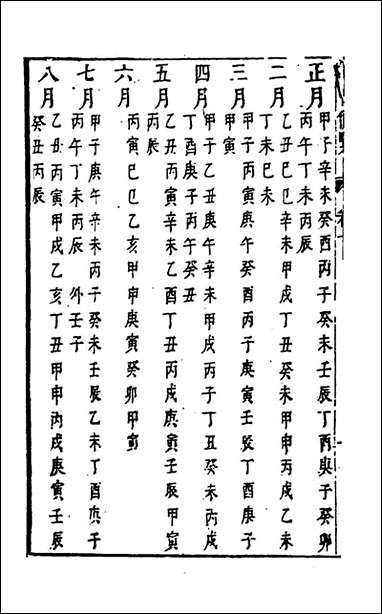 正月
甲子辛未癸酉丙子癸未壬辰丁酉庚子癸卯
丙午丁未丙辰
二月
乙丑己巳辛未甲戌丁丑癸未甲申丙戌乙未
丁未己未
三月
甲子丙寅庚午癸酉丙子庚寅壬辰丁酉庚子
甲寅
四月
甲子乙丑庚午辛未甲戌丙子丁丑癸未丙戌
丁酉庚子丙午癸丑
五月
乙丑丙寅辛未乙酉丁丑丙戌庚寅壬辰甲寅
丙辰
六月
丙寅己巳乙亥甲申庚寅癸卯甲寅
七月
甲子庚午辛未丙子癸未壬辰乙未丁酉庚子
丙午丁未丙辰 外壬子
八月
乙丑丙寅甲戌乙亥丁丑甲申丙戌庚寅壬辰
癸丑丙辰